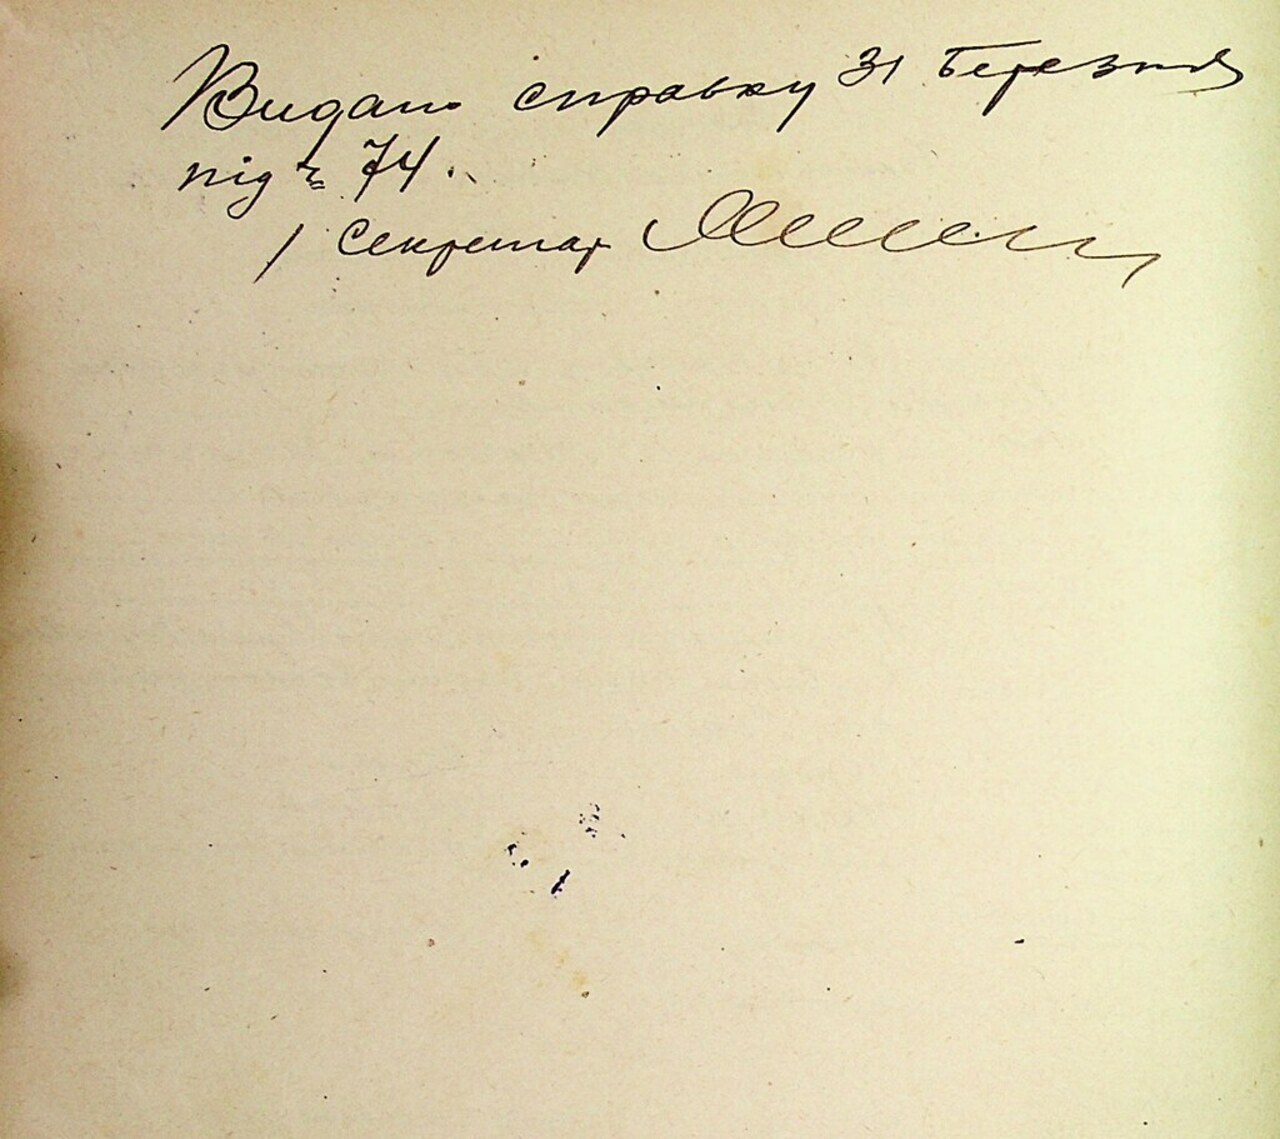 Видано справку 31 Березня
під № 74.
/ Секретар